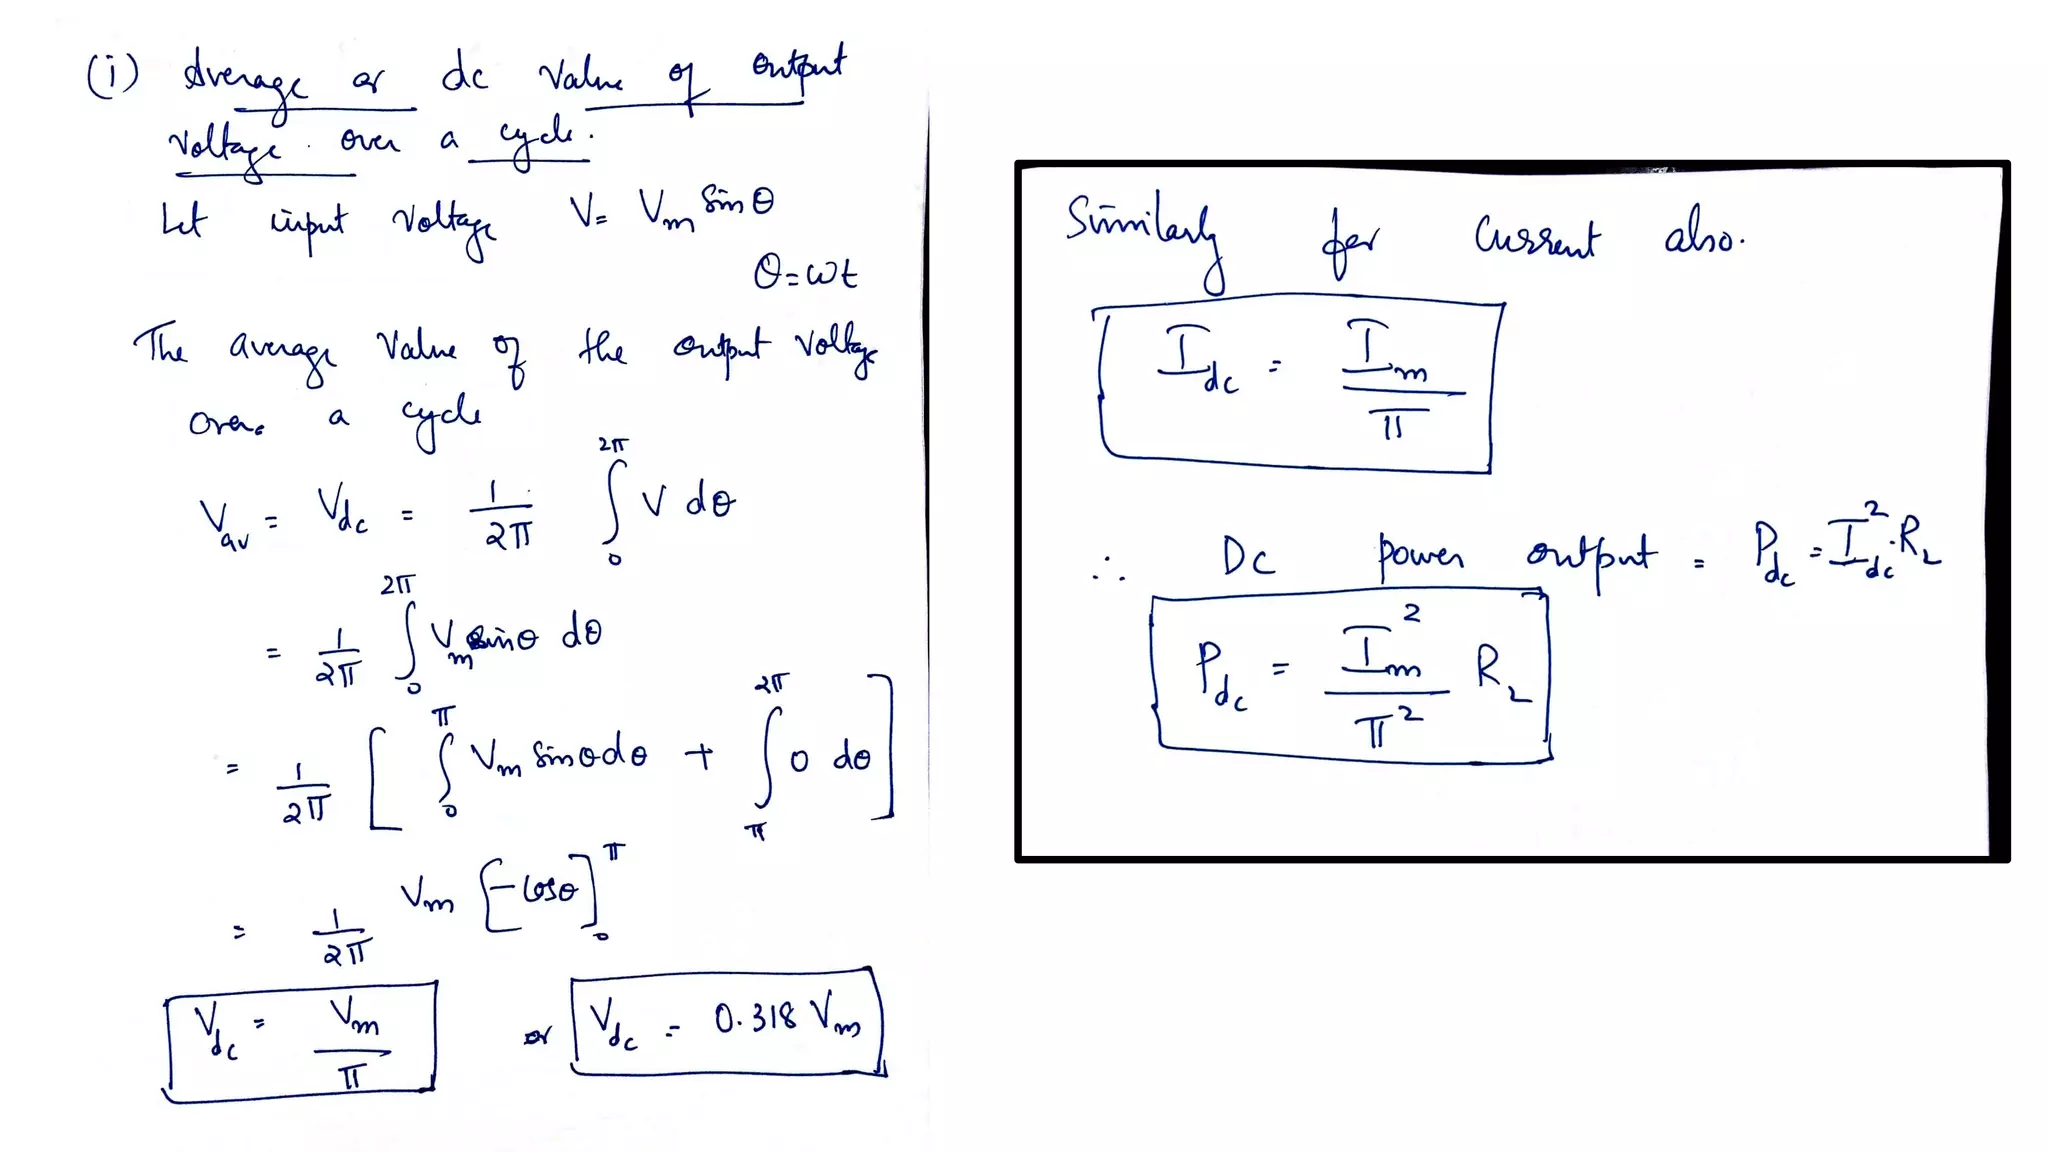 (i) Average or dc value of output
voltage over a cycle.
Let input voltage V = Vm sinθ
θ = ωt
The average value of the output voltage
over a cycle
Vav = Vdc = 1/2π ∫₀^2π V dθ
= 1/2π ∫₀^2π Vm sinθ dθ
= 1/2π [ ∫₀^π Vm sinθ dθ + ∫π^2π 0 dθ ]
= 1/2π Vm [-cosθ]₀^π
Vdc = Vm/π or Vdc = 0.318 Vm
Similarly for current also.
Idc = Im/π
∴ DC power output = Pdc = Idc². RL
Pdc = Im²/π² RL